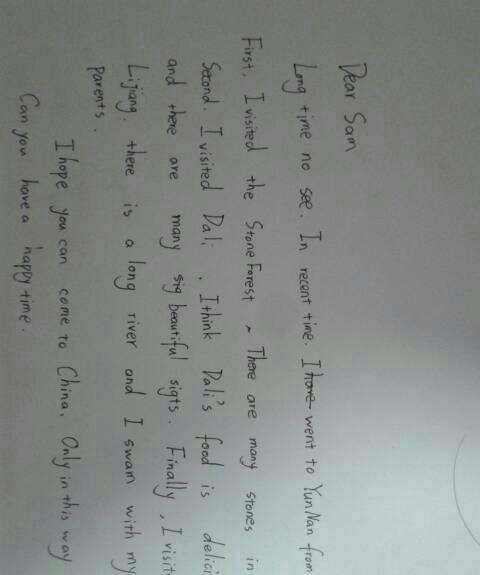 Dear Sam
Long time no see. In recent time. I went to YunNan from
First, I visited the Stone Forest. There are many stones in
Second. I visited Dali. I think Dali's food is delici
and there are many beautiful sigts. Finally, I visit
Lijiang. there is a long river and I swam with my
parents.
I hope you can come to China. Only in this way
Can you have a happy time.